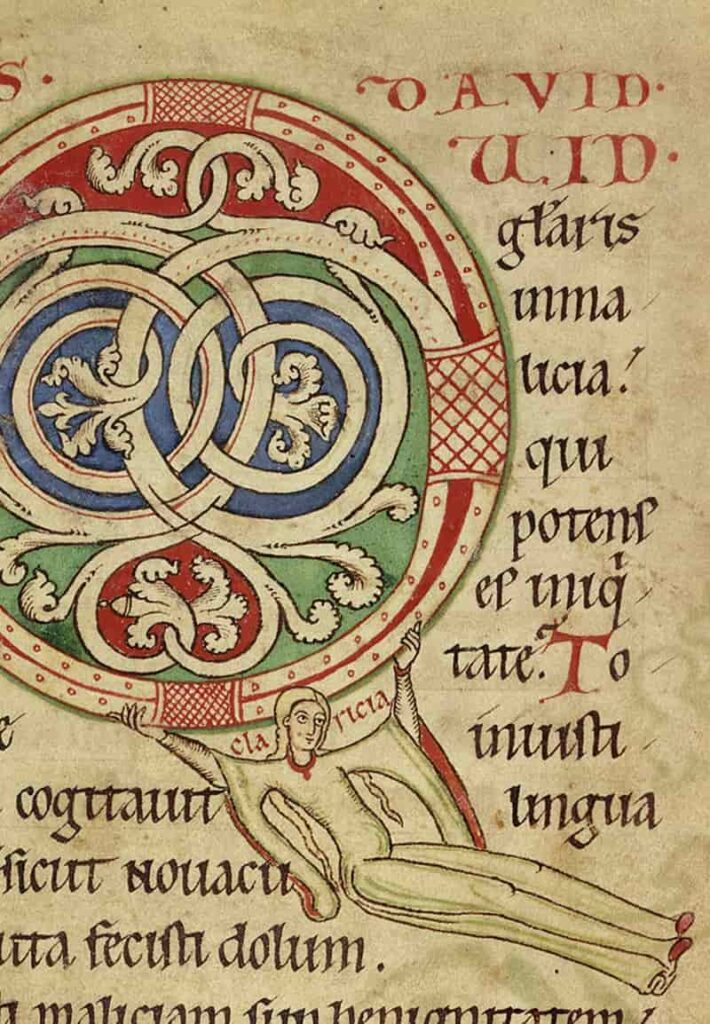 S. DAVID.
UID.
gl̄aris
inma
licia.
qui
potens
es iniq̇
tate. To
claricia
e iniusti
cogitauit lingua
sicut nouacu
uta fecisti dolum.
ti maliciam sup benignitatem